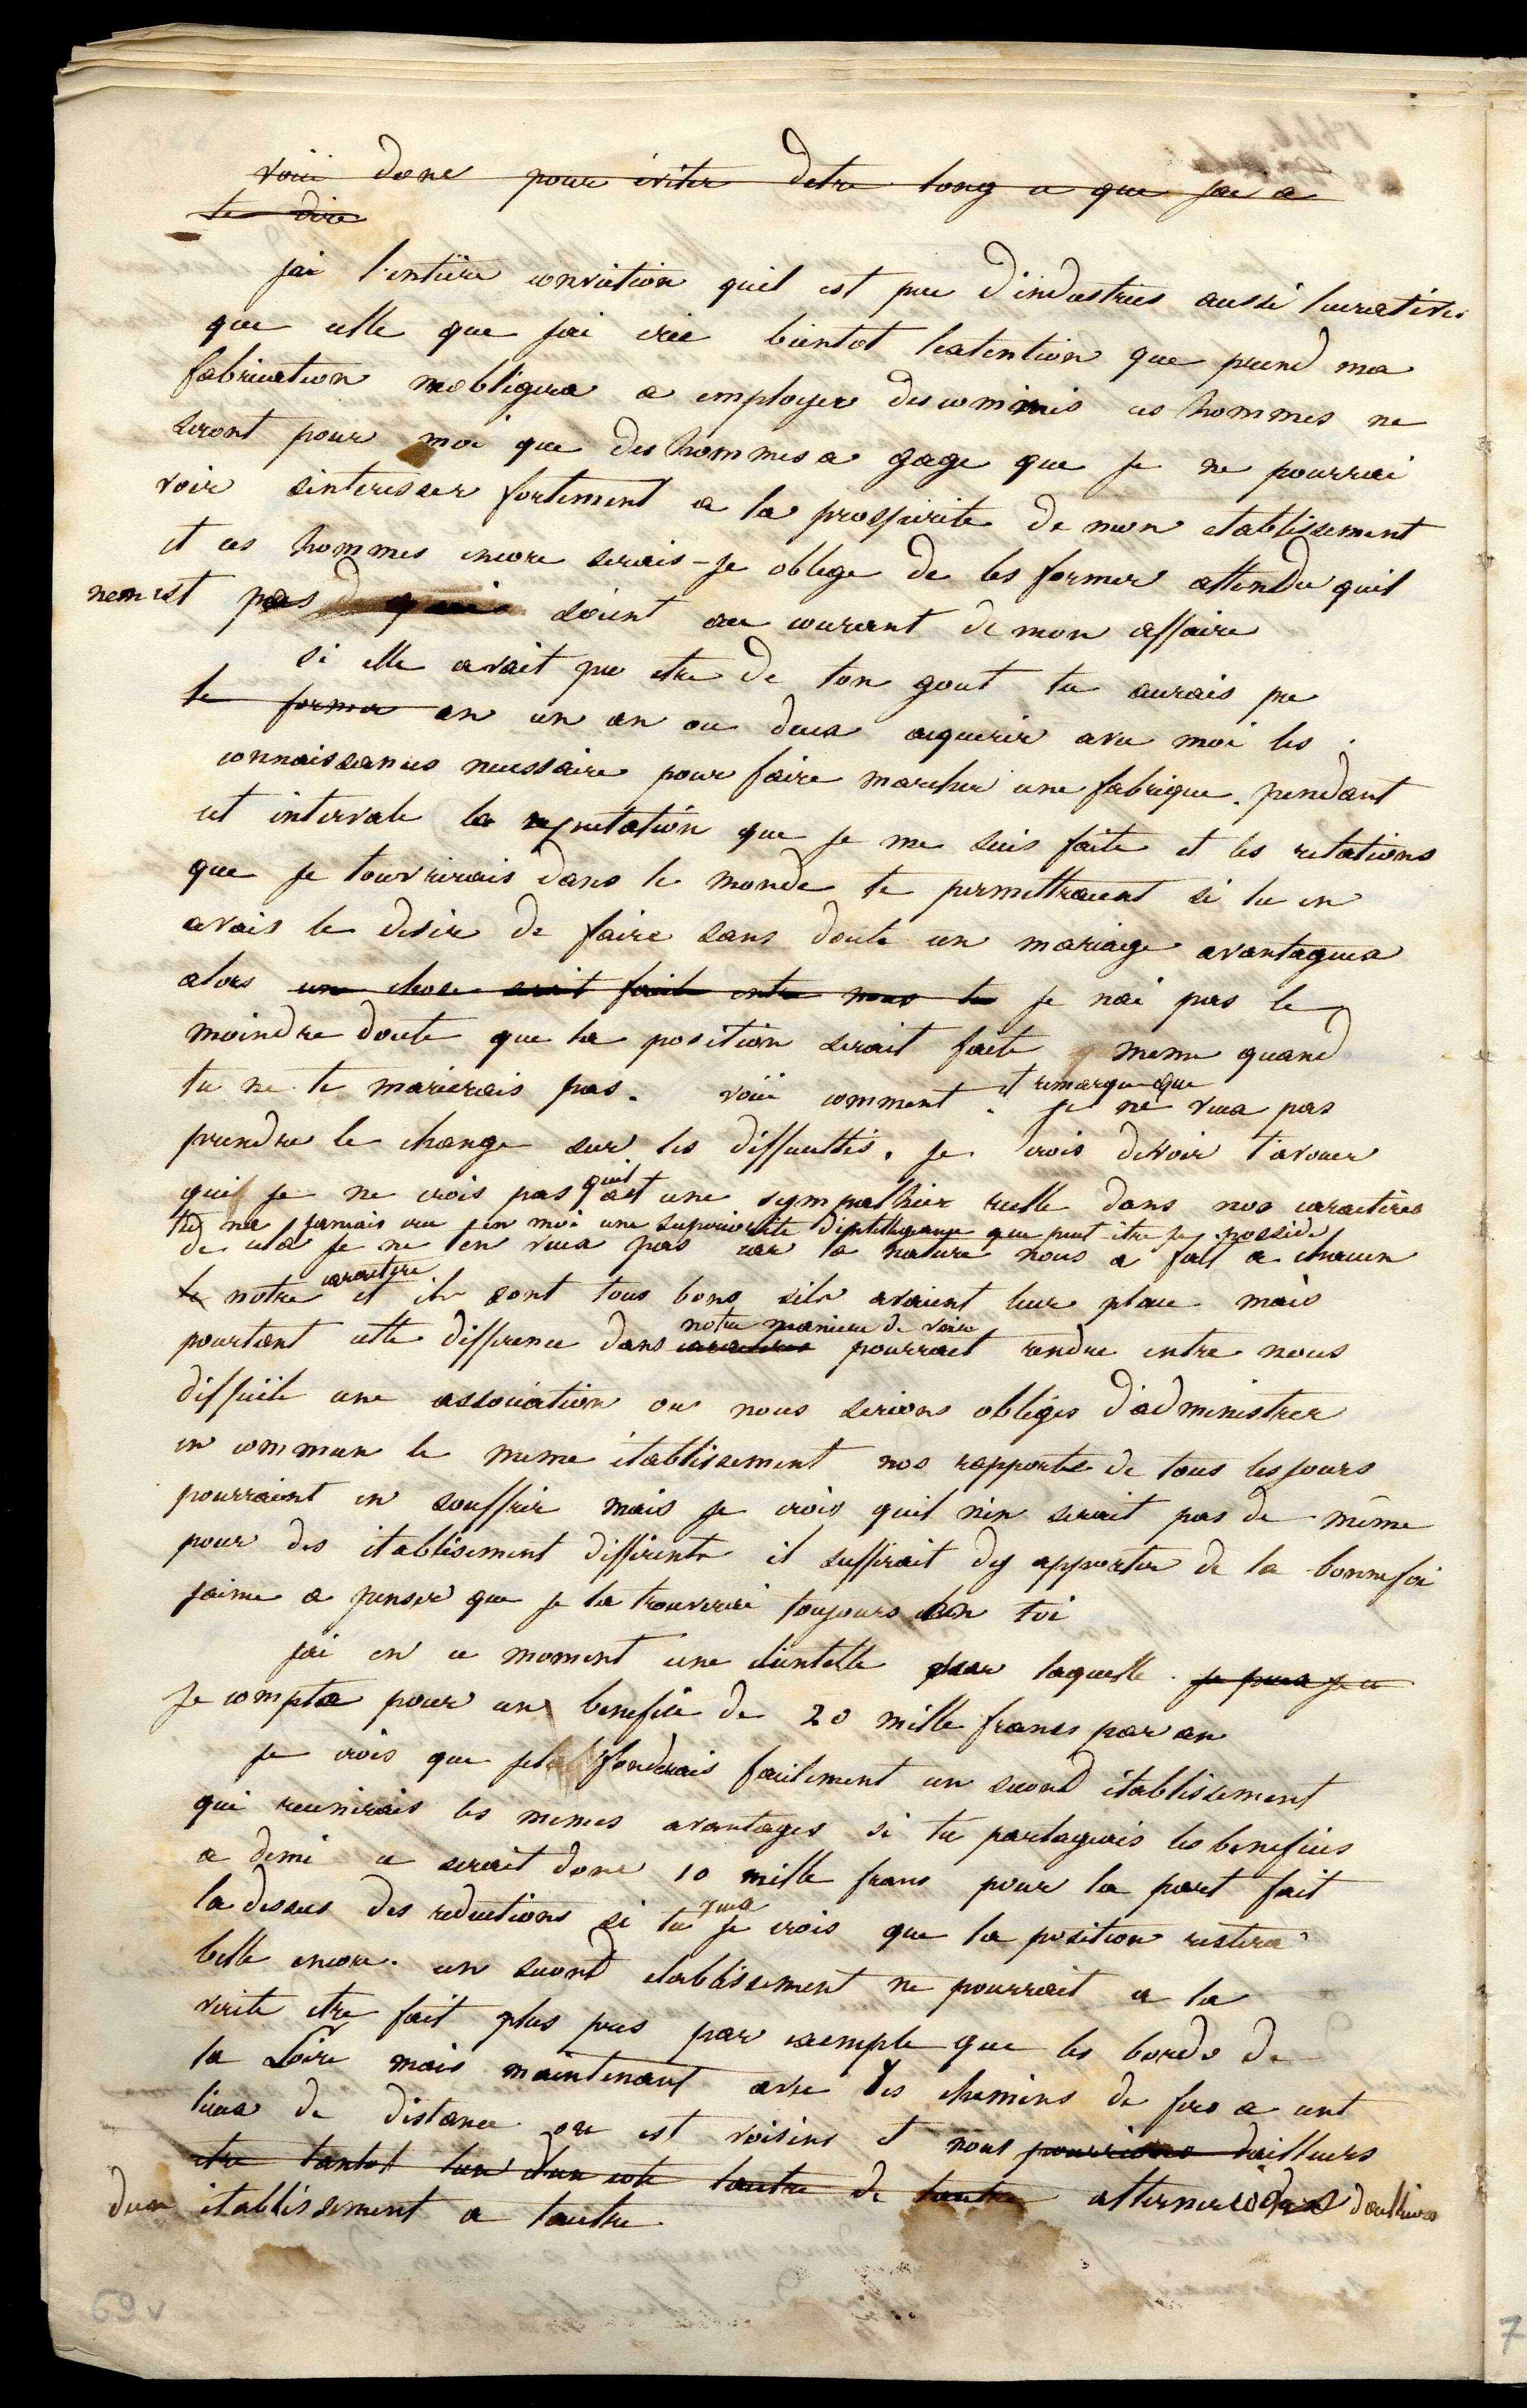 voici donc pour eviter detre long ce que jai a
te dire
jai l'entiere conviction quil est peu d'industries aussi lucratives
que celle que jai crée bientot lextention que prend ma
fabrication mobligera a employer des commis ces hommes ne
seront pour moi que des hommes a gage que je ne pourrai
voir sinteresser fortement a la prosperite de mon etablissement
et ces hommes encore serais-je oblege de les former attendu quil
nen est pas qui soient au courant de mon affaire
si elle avait pu etre de ton gout tu aurais pu
te former en un an ou deux aquerir avec moi les
connaissances necessaire pour faire marcher une fabrique. pendant
cet intervale la reputation que je me suis faite et les relations
que je touvrirais dans le monde te permettraient si tu en
avais le desir de faire sans doute un mariage avantageux
alors une chose serait faite entre nous tu je nai pas le
moindre doute que ta position serait faite meme quand
tu ne te marierais pas. voici comment. et remarque que
je ne veux pas
prendre le change sur les difficultés. je crois devoir t'avouer
que je ne crois pas quil est une sympathie reelle dans nos caractères
tu na jamais vu en moi une superiorite d'intelligence que peut-etre je possede
de cela je ne ten veux pas car la nature nous a fait a chacun
le notre caractere et ils sont tous bons sils avaient leur place mais
pourtant cette diffrence dans caracteres notre maniere de voire pourrait rendre entre nous
difficile une association ou nous serions obligés d'administrer
en commun le meme établissement nos rapports de tous les jours
pourraient en souffrir mais je crois quil nen serait pas de même
pour des établisement différents il suffirait dy apporter de la bonne foi
jaime a penser que je la trouverai toujours en toi
jai en ce moment une clientelle sur laquelle je puis je ce
Je compte pour un benefice de 20 mille francs par an
je crois que je fonderais facilement un second établissement
qui reunirais les memes avantages si tu partageais les benefices
a demi ce serait donc 10 mille francs pour ta part fait
la dessus des reductions si tu veux je crois que ta position restera
belle encore. un second etablissement ne pourrait a la
verite etre fait plus pres par exemple que les bords de
la Loire mais maintenant avec les chemins de fers a cent
lieux de distance on est voisins et nous pourrions dailleurs
etre tantot lun dun coté lautre de lautre alternerions dailleurs
dun établissement a lautre
69 v
7